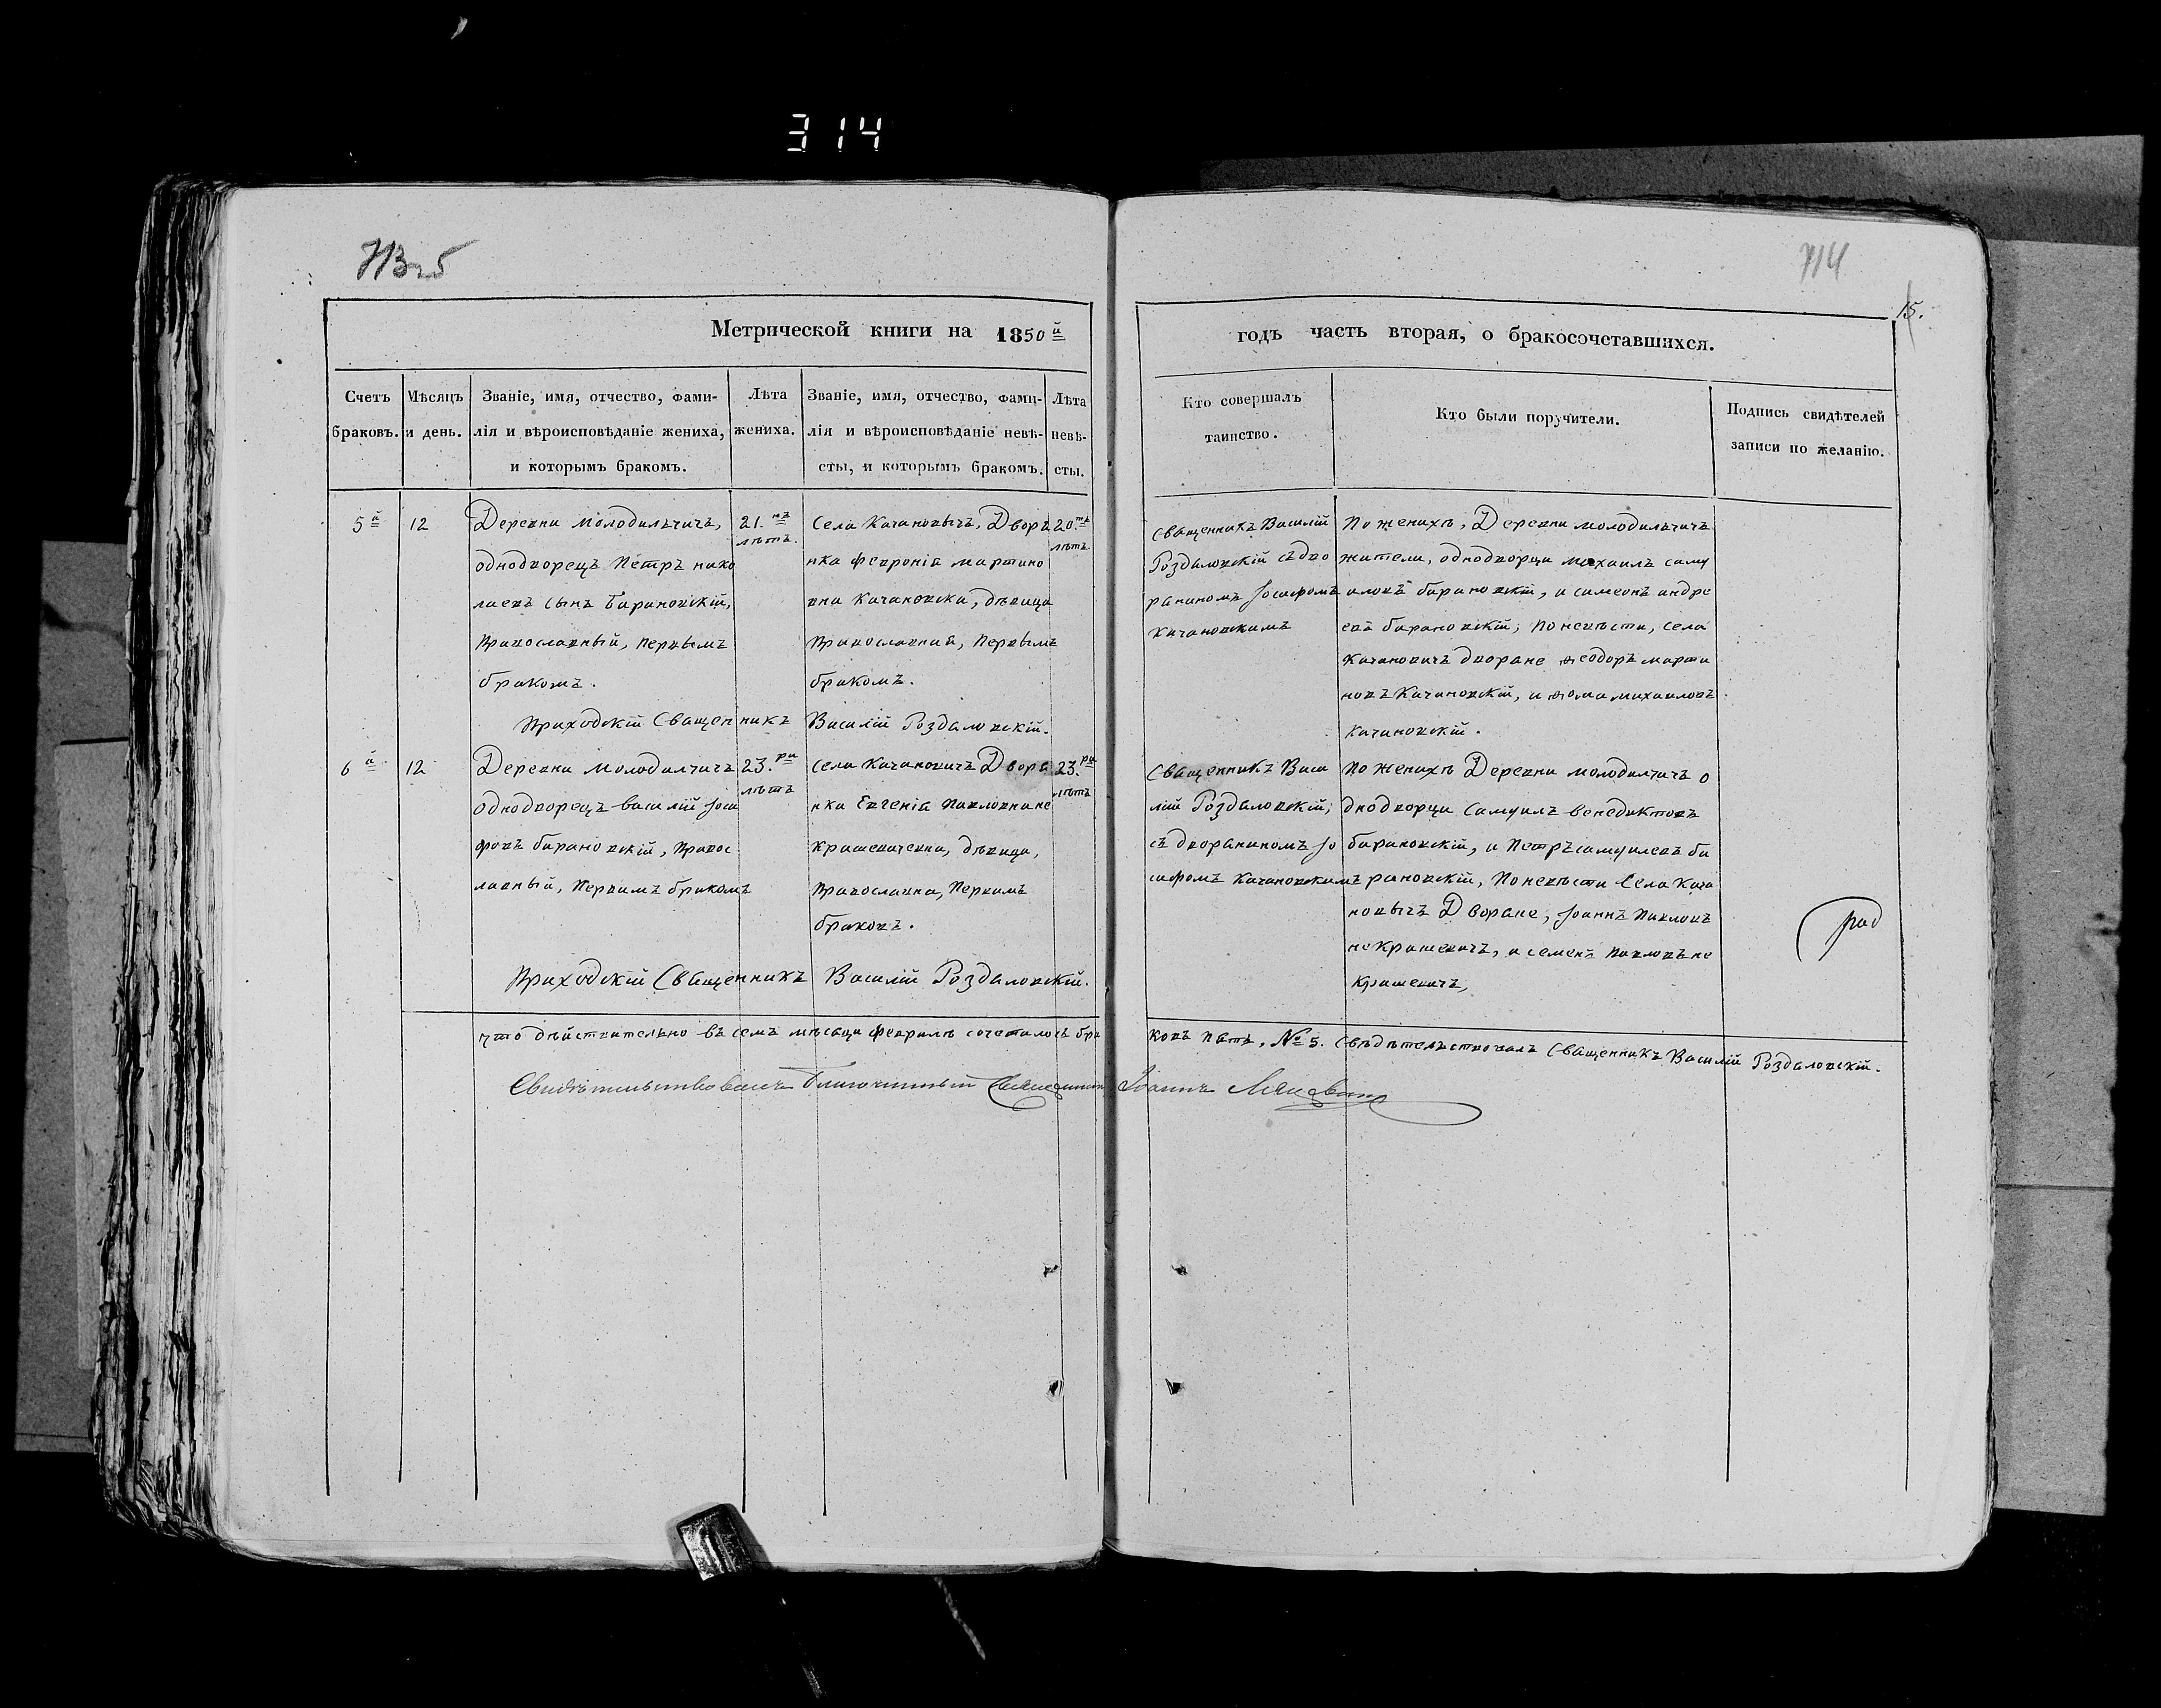 314
713 об
714
15.
Метрической книги на 1850й
годъ часть вторая, о бракосочетавшихся.
Счетъ браковъ.
Мѣсяцъ и день.
Званіе, имя, отчество, фами-
лія и вѣроисповѣданіе жениха,
и которымъ бракомъ.
Лѣта
жениха.
Званіе, имя, отчество, фами-
лія и вѣроисповѣданіе невѣ-
сты, и которымъ бракомъ.
Лѣта
невѣ-
сты.
Кто совершалъ
таинство.
Кто были поручители.
Подпись свидѣтелей
записи по желанію.
5й
12
Деревни Молодильчичъ,
однодворецъ Петръ нико
лаевъ сынъ Барановскій,
Православный, первымъ
бракомъ.
21.нъ
лѣтъ.
Села Качановычъ, Дворя
нка Февронія мартино
вна Качановска, дѣвица
Православная, Первымъ
бракомъ.
20.ть
лѣтъ
Священникъ Василій
Роздаловскій съ дво
ряниномъ Іосифомъ
Качановскимъ
По женихѣ, Деревни молодильчичъ
жители, однодворци михаилъ саму
иловъ барановскій, и симеонъ андре
евъ барановскій; По невѣсти, села
Качановичъ дворане ѳеодоръ марти
новъ Качановскій, и ѳома михаиловъ
Качановскій.
Приходскій Священникъ Василій Роздаловскій.
6й
12
Деревни Молодилчичъ
однодворецъ василій Іоси
фовъ барановскій, Правос
лавный, Первимъ бракомъ
23.ри
лѣтъ
села Качановичъ Дворя
нка Евгенія Павловна не
крашевичевна, дѣвица,
Православна, Первимъ
браковъ.
23.ри
лѣтъ
Священникъ Васи
лій Роздаловскій;
съ дворяниномъ Іо
сифомъ Качановскимъ
По женихѣ Деревни молодилчичъ о
днодворци Самуилъ венедиктовъ
барановскій, и Петръ самуилевъ ба
рановскій, По невѣсти Села Кача
новычъ Дворане, Іоаннъ Павловъ
некрашевичъ, и семенъ павловъ не
крашевичъ,
Приходскій Священникъ Василій Роздаловскій.
что дѣйствительно въ семъ мѣсяци февралѣ сочеталось бра
ковъ пять, № 5. Свѣдѣтельствовалъ Священникъ Василій Роздаловскій.
Свидѣтельствовалъ Благочинный Священникъ Іоаннъ